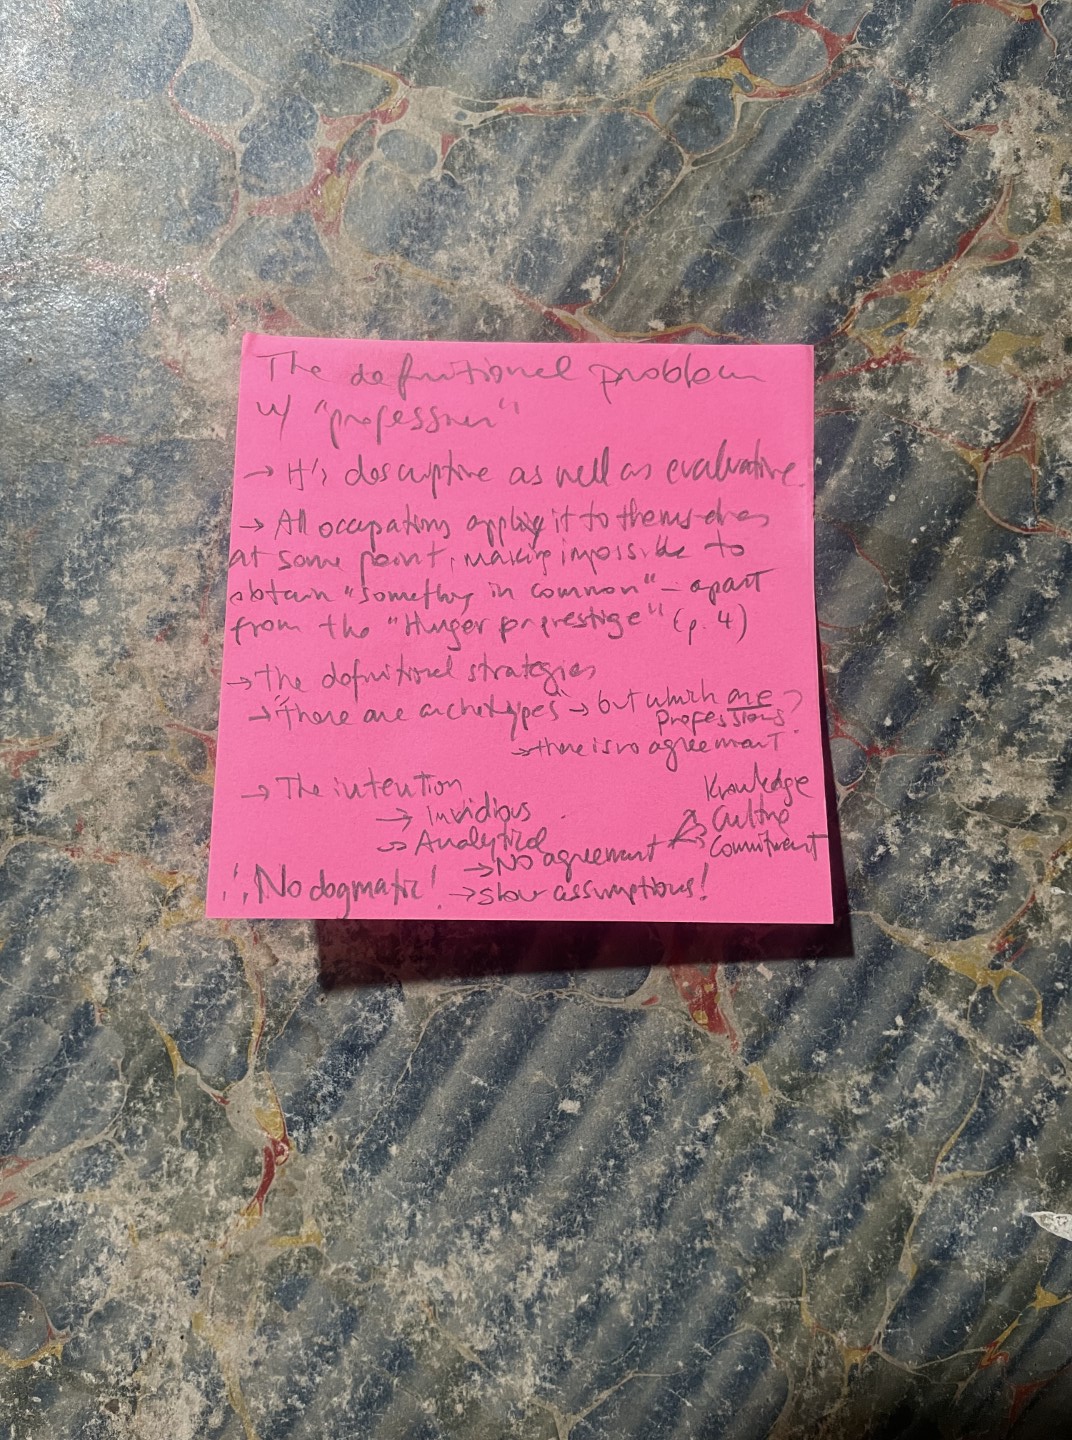 The definitional problem
w/ "profession"
→ It's descriptive as well as evaluative.
→ All occupations applying it to themselves
at some point, making impossible to
obtain "something in common" – apart
from the "Hunger for prestige" (p. 4)
→ The definitional strategies
→ "There are archetypes" → but which are professions?
→ there is no agreement
→ The intention
→ Invidious
→ Analytical
→ No agreement → Knowledge
Culture
Commitment
∴ No dogmatic! → show assumptions!